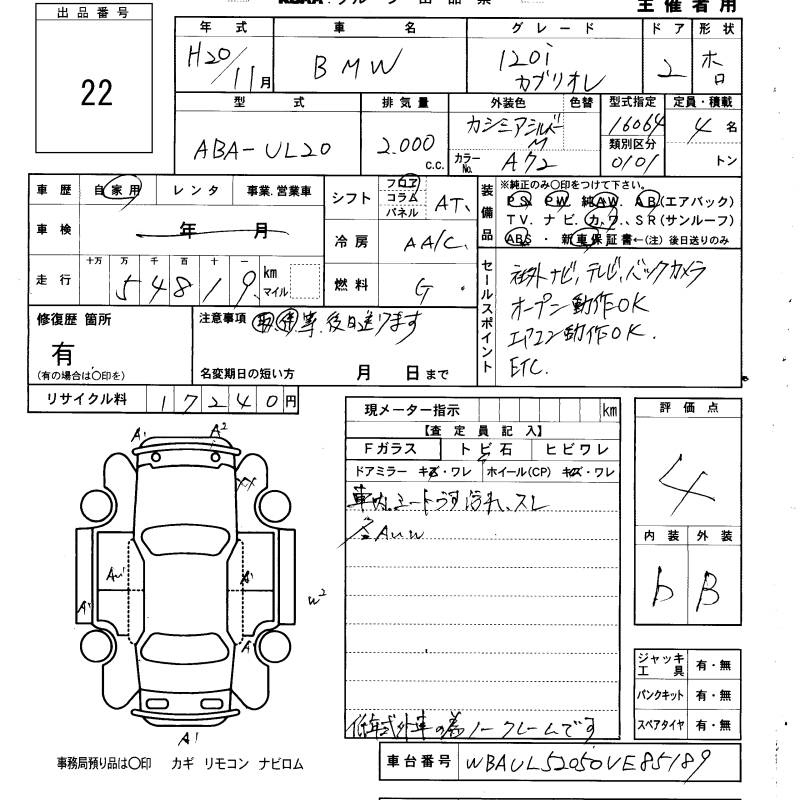 主催者用
出品番号
22
年式 車名 グレード ドア 形状
H20/11月 BMW 120i カブリオレ 2 ホロ
型式 排気量 外装色 色替 型式指定 定員・積載
ABA-UL20 2.000 c.c. カシミアシルバーM 16064 4名
カラーNo. A72 類別区分 0101 トン
車歴 自家用 レンタ 事業.営業車
車検 年 月
走行 十万 万 千 百 十 一 km マイル
54819
シフト フロア コラム パネル AT.
冷房 AA/C.
燃料 G.
装備品 ※純正のみ〇印をつけて下さい。
PS PW 純AW. AB(エアバック)
TV. ナビ. カワ. SR(サンルーフ)
ABS ・ 新車保証書←(注) 後日送りのみ
セールスポイント
社外ナビ, テレビ, バックカメラ
オープン動作OK
エアコン動作OK.
ETC.
修復歴 箇所
有
(有の場合は〇印を)
注意事項 後日送ります
名変期日の短い方 月 日まで
リサイクル料 17240円
現メーター指示 km
【査定員記入】
Fガラス トビ石 ヒビワレ
ドアミラー キズ・ワレ ホイール(CP) キズ・ワレ
車内シートうす汚れ、スレ
各AUW
低年式外車の為ノークレームです
評価点
4
内装 外装
b B
ジャッキ工具 有・無
パンクキット 有・無
スペアタイヤ 有・無
A1 A2
XX
AU1 A1
A1 W2
A1
A1
事務局預り品は〇印 カギ リモコン ナビロム
車台番号 WBAUL52050VE85189